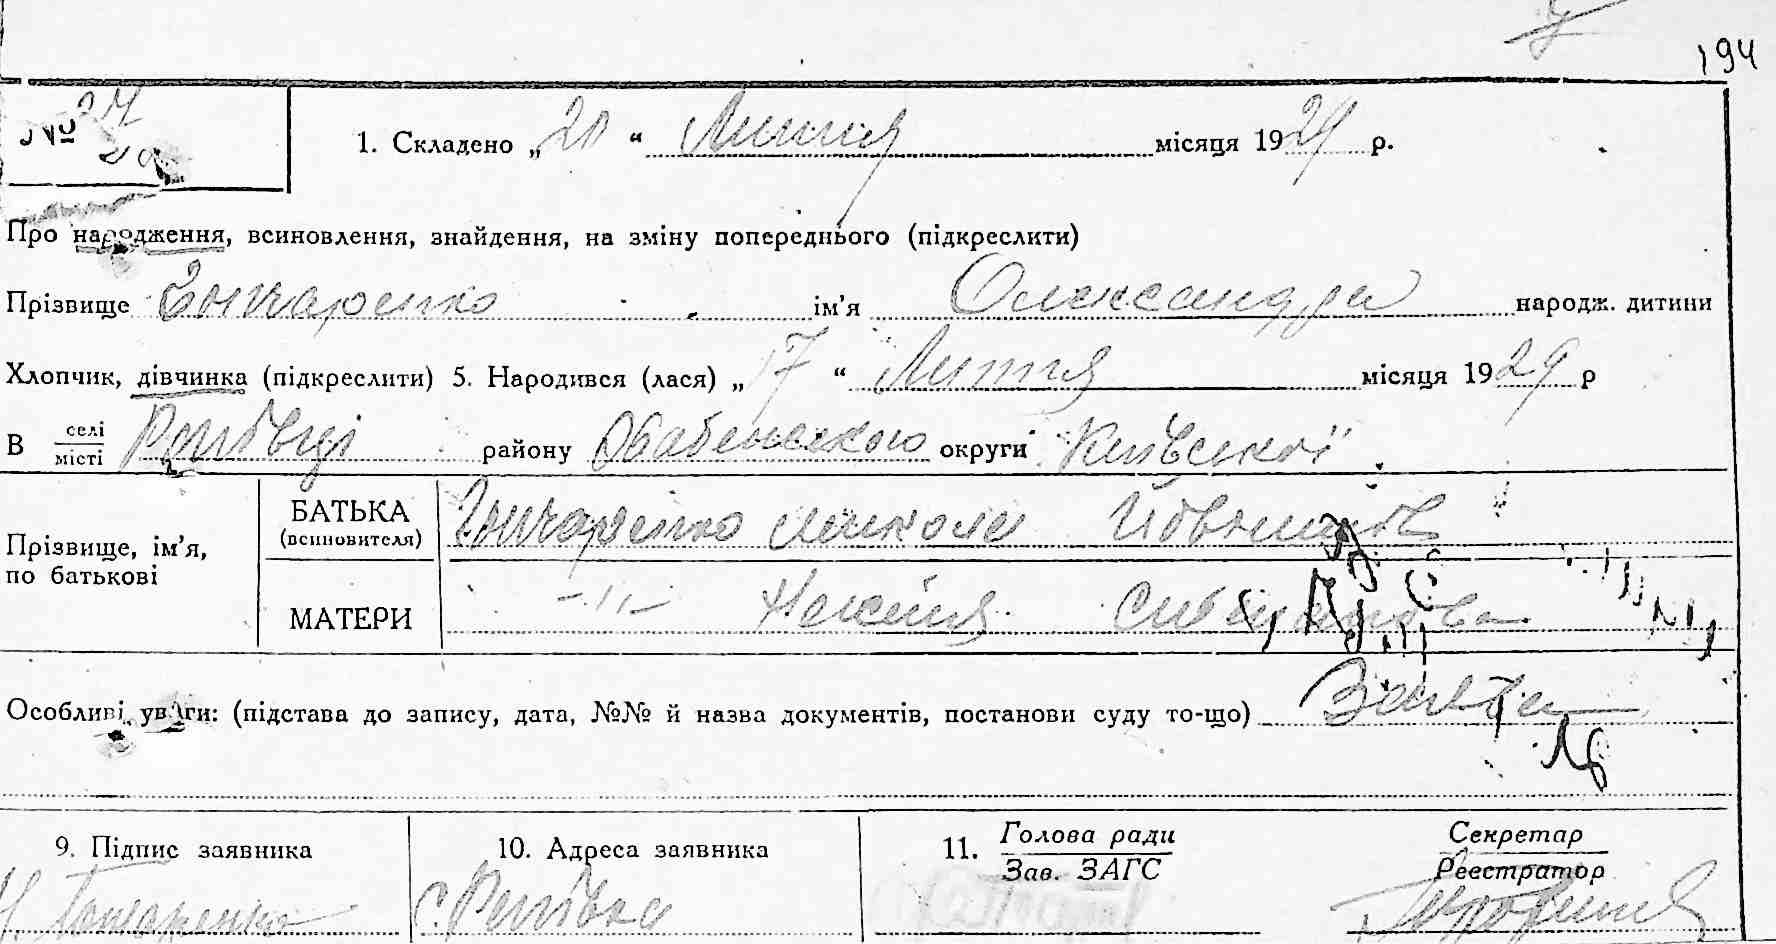 194
№ 27
1. Складено „20“ Липня місяця 1929 р.
Про народження, всиновлення, знайдення, на зміну попереднього (підкреслити)
Прізвище Гончаренко ім’я Олександра народж. дитини
Хлопчик, дівчинка (підкреслити) 5. Народився (лася) „17“ Липня місяця 1929 р
В селі місті району округи Київської
Прізвище, ім’я, по батькові
БАТЬКА (всиновителя) Гончаренко Микола
МАТЕРИ -„-
Особливі уваги: (підстава до запису, дата, №№ й назва документів, постанови суду то-що) Заява
9. Підпис заявника 10. Адреса заявника 11. Голова ради Зав. ЗАГС Секретар Реєстратор
с.